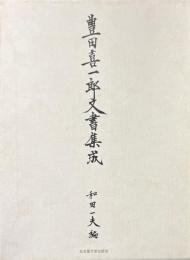 豊田喜一郎文書集成
和田一夫編
名古屋大学出版会